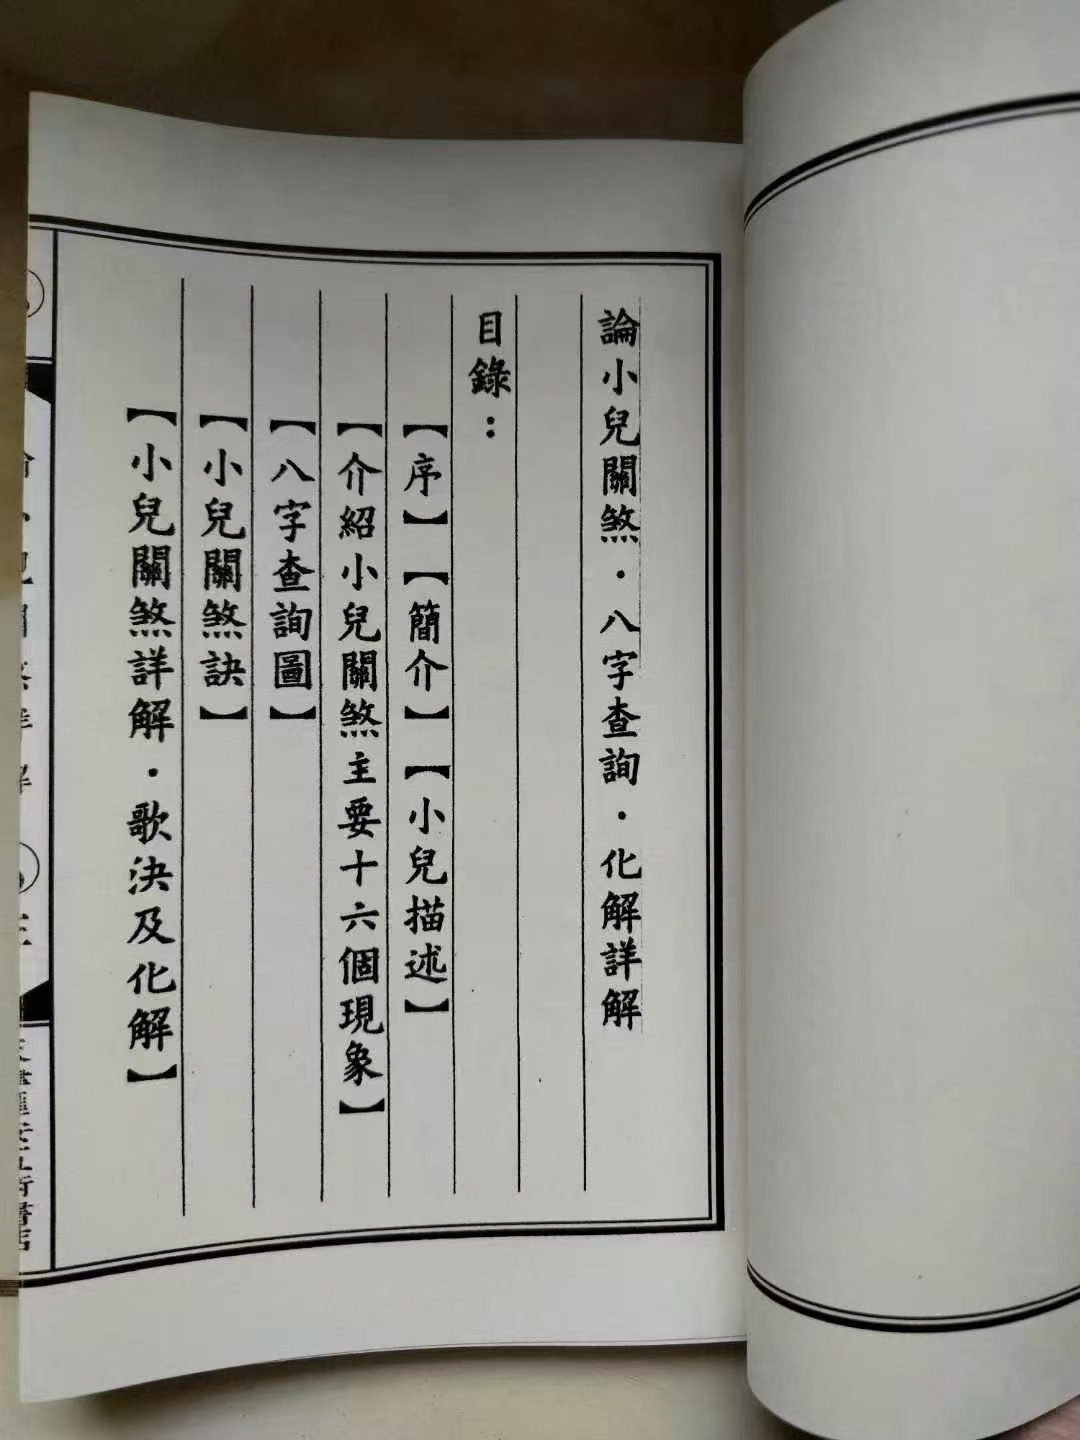 論小兒關煞・八字查詢・化解詳解
目錄：
【序】【簡介】【小兒描述】
【介紹小兒關煞主要十六個現象】
【八字查詢圖】
【小兒關煞訣】
【小兒關煞詳解・歌決及化解】